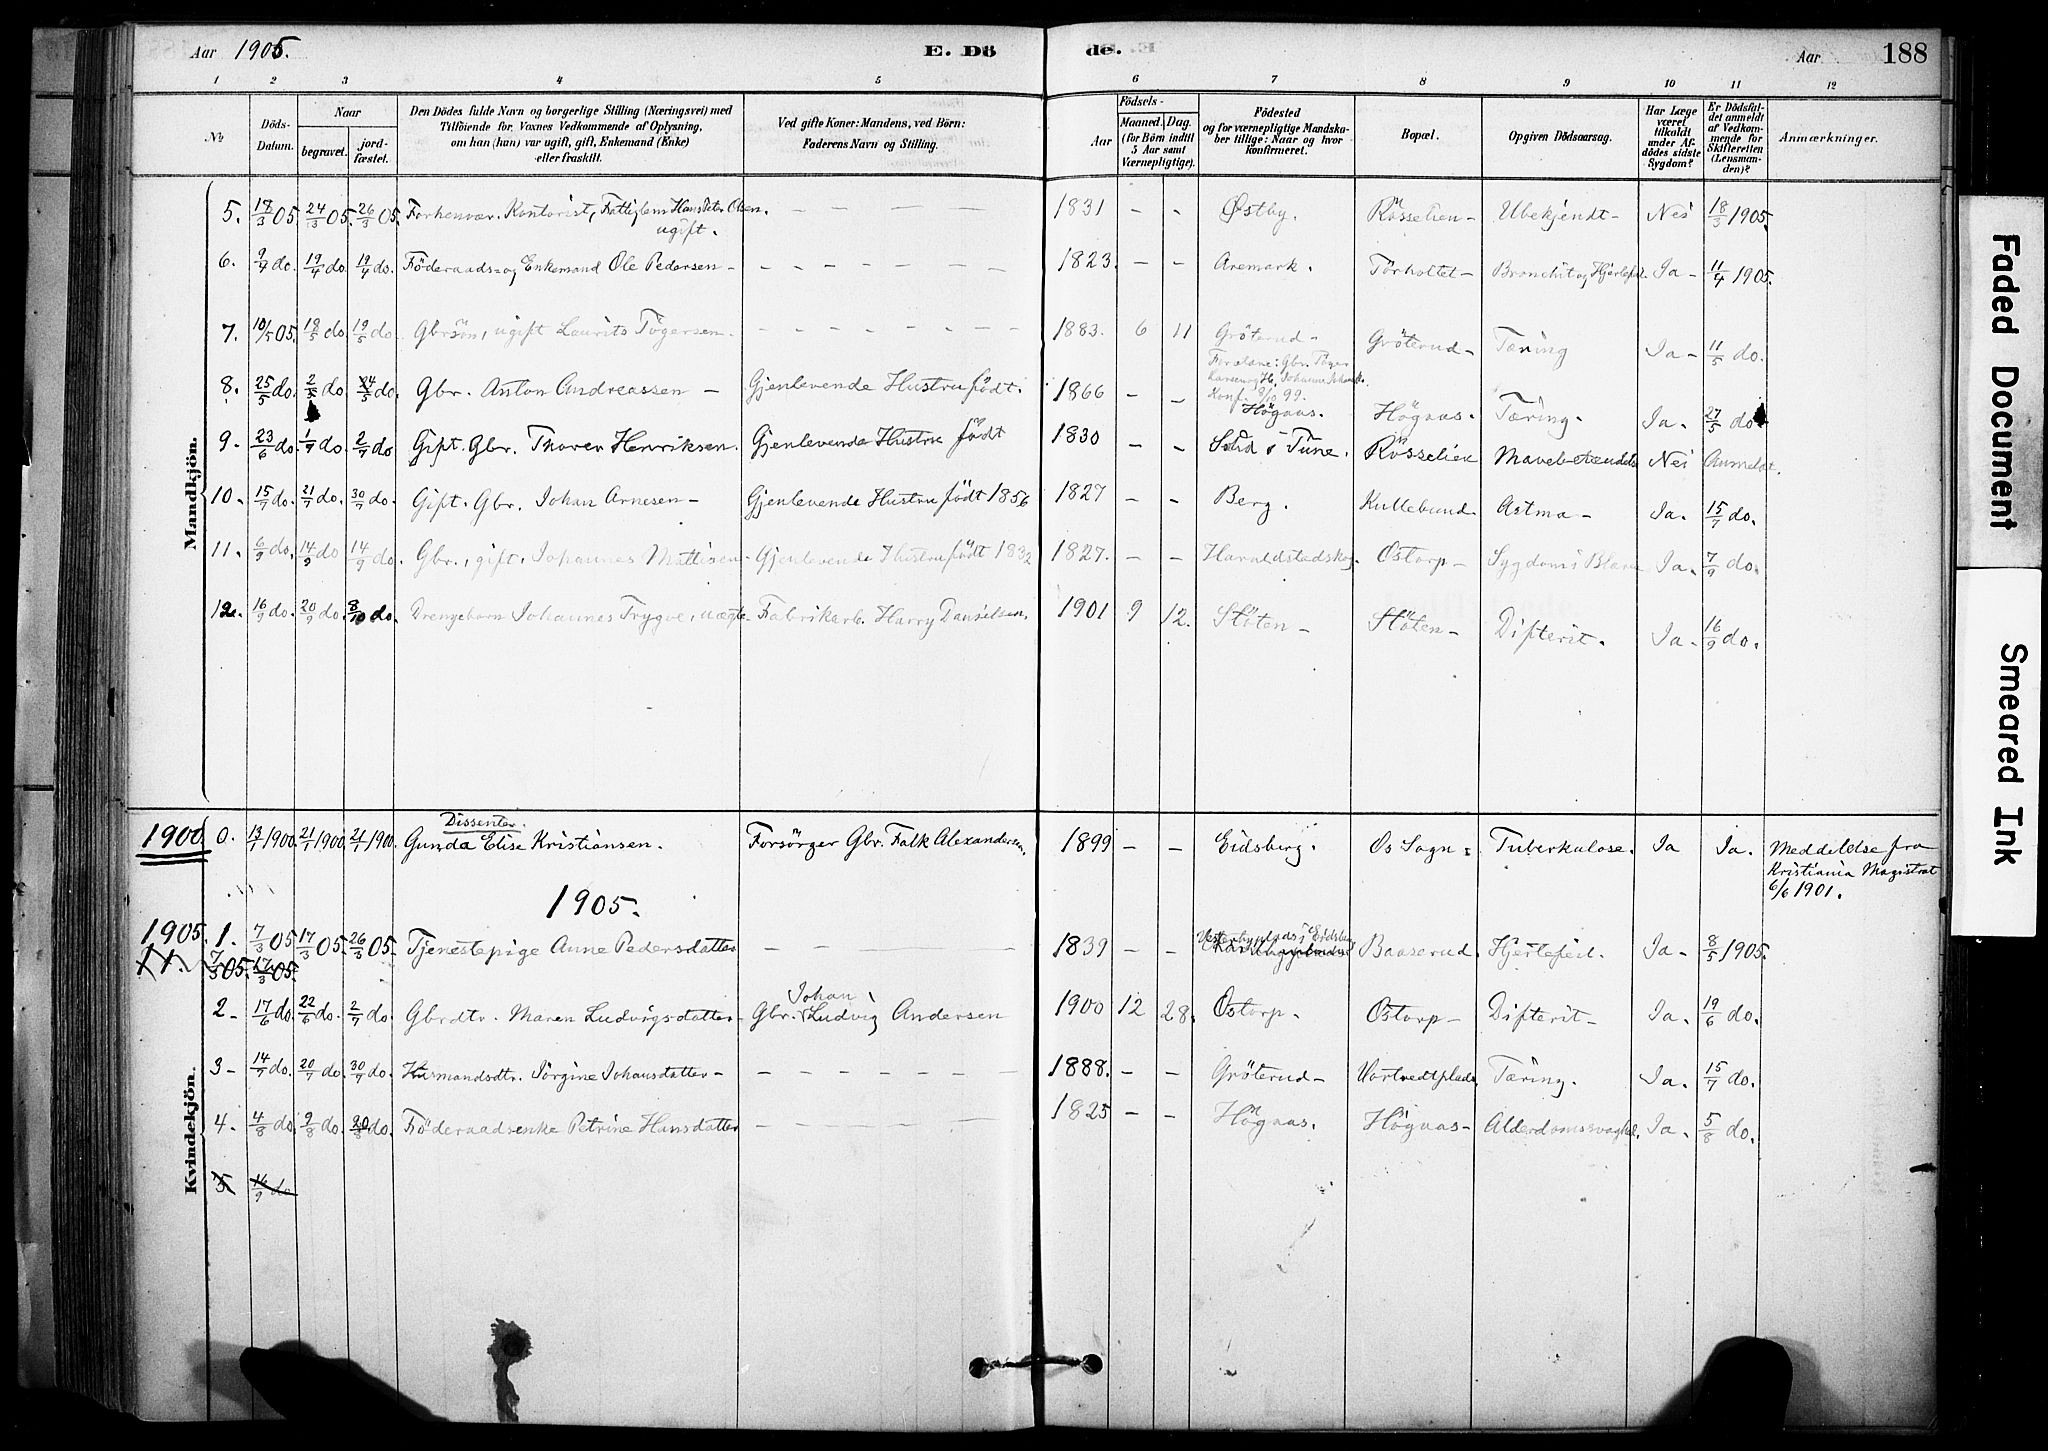 Aar 1905. E. Dö de. Aar 188
1 2 3 4 5 6 7 8 9 10 11 12
No
Döds-Datum.
Naar
begravet.
jord-fæstet.
Den Dödes fulde Navn og borgerlige Stilling (Næringsvei) med
Tilföiende for Voxnes Vedkommende af Oplysning,
om han (hun) var ugift, gift, Enkemand (Enke)
eller fraskilt.
Ved gifte Koner: Mandens, ved Börn:
Faderens Navn og Stilling.
Födsels-
Aar
Maaned. Dag.
(for Börn indtil
5 Aar samt
Værnepligtige).
Födested
og for værnepligtige Mandska-
ber tillige: Naar og hvor
konfirmeret.
Bopæl.
Opgiven Dödsaarsag.
Har Læge
været
tilkaldt
under Af-
dödes sidste
Sygdom?
Er Dödsfal-
det anmeldt
af Vedkom-
mende for
Skifteretten
(Lensman-
den)?
Anmærkninger.
Mandkjön.
5. 18/3 05. 24/3 05. 26/3 05. Forhenvær. Kontorist, Fattiglem Hans Peter Olsen. — — — — 1831 - - Østby. Rösselien - Ubekjendt - Nei 18/3 1905.
ugift.
6. 9/4 do. 19/4 do. 19/4 do. Föderaads- og Enkemand Ole Pedersen - - - - - - - 1823. - - Aremark. Törholtet - Bronchit og Hjertefeil. Ja - 11/4 1905.
7. 10/5 05. 18/5 do. 19/5 do. Gbrsön, ugift Laurits Tögersen. - - - - - - - 1883. 6 11 Gröterud - Gröterud - Tæring Ja - 11/5 do.
Forældre: Gbr. Töger
Konf. 8/10 99.
8. 25/5 do. 2/5 do. 24/5 do. Gbr. Anton Andreassen - Gjenlevende Hustru födt. 1866 - - Högaas. Högaas. Tæring. Ja. 27/5 do.
9. 23/6 do. 1/7 do. 2/7 do. Gift. Gbr. Thorer Henriksen. Gjenlevende Hustru födt 1830 - - i Tune. Rösselien Nei Anmeldt.
10. 15/7 do. 21/7 do. 30/7 do. Gift. Gbr. Johan Arnesen - Gjenlevende Hustru födt 1856 1827 - - Berg. Kullebund Astma - Ja. 15/7 do.
11. 6/9 do. 14/9 do 14/9 do. Gbr., gift, Johannes Mattisen - Gjenlevende Hustru födt 1832 1827. - - Haraldstadskog. Ostorp - Sygdom i Blæren Ja. 7/9 do.
12. 16/9 do. 20/9 do. 8/10 do. Drengebarn Johannes Trygve, uægte - Fabrikarb. Harry Danielsen. 1901 9 12. Stöten - Stöten - Difterit. Ja - 16/9 do.
Dissenter.
1900 0. 13/7 1900. 21/7 1900. 21/7 1900. Gunda Elise Kristiansen. Forsörger Gbr. Falk Alexandersen. 1899 - - Eidsberg. Os Sogn. Tuberkulose. Ja Ja. Meddelelse fra
Kristiania Magistrat
6/6 1901.
1905.
Kvindekjön.
1905. 1. 7/3 05 17/3 05. 26/3 05. Tjenestepige Anne Pedersdatter - - - - 1839 - - i Eidsberg Baaserud. Hjertefeil. Ja - 8/5 1905.
11. 7/3 05. 17/3 05.
Johan
2 - 17/6 do 22/6 do. 2/7 do. Gbrdtr. Maren Ludvigsdatter - Gbr. Ludvig Andersen 1900 12 28. Ostorp. Ostorp - Difterit - Ja. 19/6 do.
3 - 14/7 do. 20/7 do. 30/7 do. Husmandsdtr. Jörgine Johansdatter - - - - - - - - 1888. - - Gröterud - Vortvedtplads. Tæring. Ja. 15/7 do.
4. 4/8 do. 9/8 do. 20/8 do. Föderaadsenke Petrine Hansdatter - - - - - - 1825 - - Högaas. Högaas - Alderdomssvaghed. Ja. 5/8 do.
5 16/9 do
Faded Document
Smeared Ink